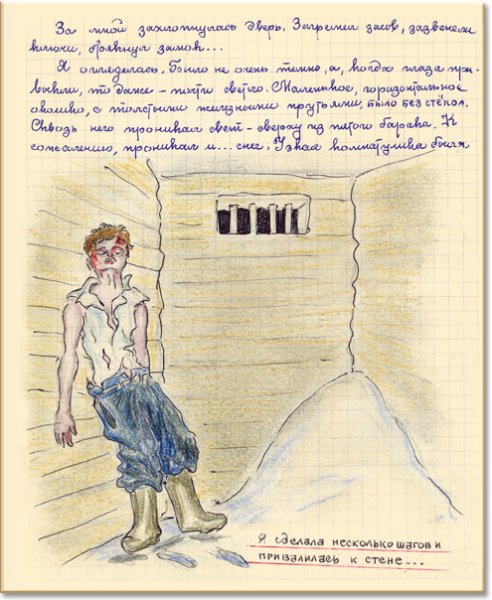 За мной захлопнулась дверь. Загремел засов, зазвенели
ключи, брякнул замок...
Я огляделась. Было не очень темно, а, когда глаза при-
выкли, то даже – почти светло. Маленькое, горизонтальное
окошко, с толстыми железными прутьями, было без стёкол.
Сквозь него проникал свет – сверху из пятого барака. К
сожалению, проникал и... снег. Узкая комнатушка была
Я сделала несколько шагов и
привалилась к стене...